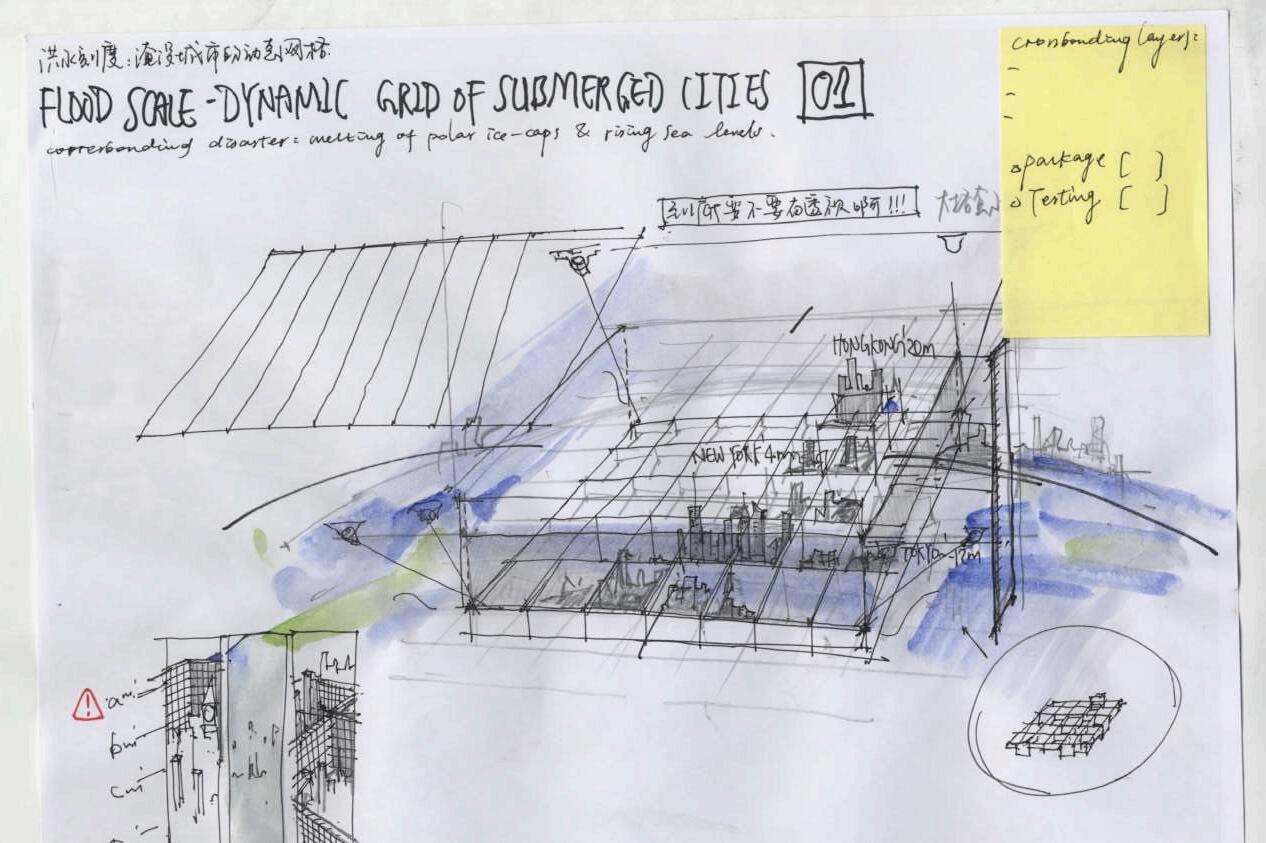 洪水刻度：淹没城市的动态网格
FLOOD SCALE - DYNAMIC GRID OF SUBMERGED CITIES 01
corresbonding disaster: melting of polar ice-caps & rising sea levels.
crossbonding layers:
package [ ]
Testing [ ]
不要有透视啊!!!
HONGKONG 20m
NEW YORK 4m
TOKYO -12m
am
bm
cm